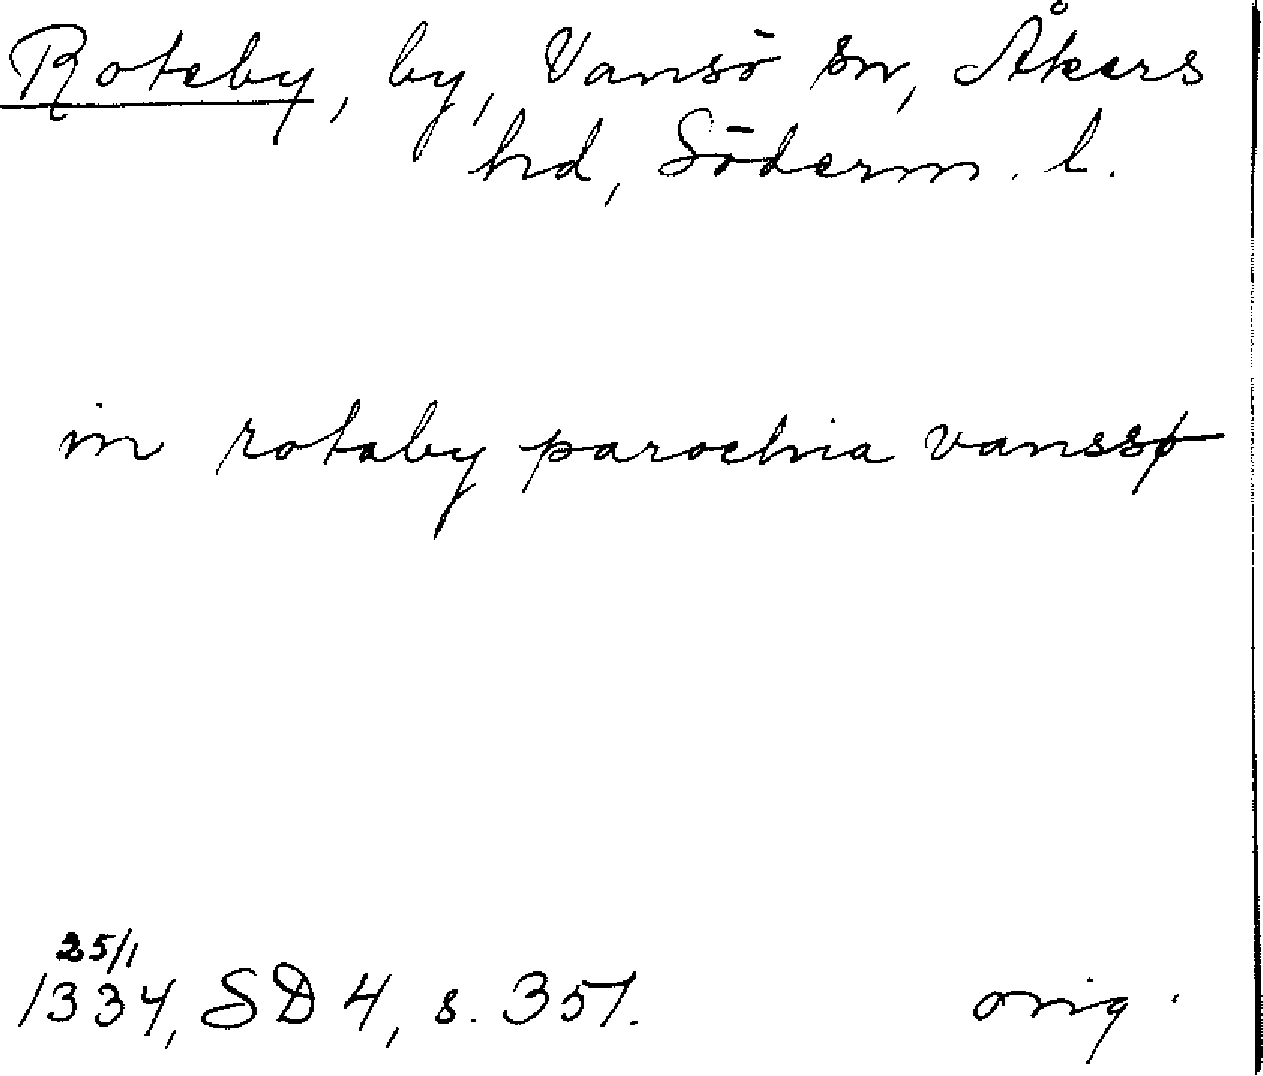 Roteby, by, Vansö sn, Åkers
hd, Söderm. l.
in rotaby parochia vanssø
25/1
1334, SD 4, s. 351.
orig.